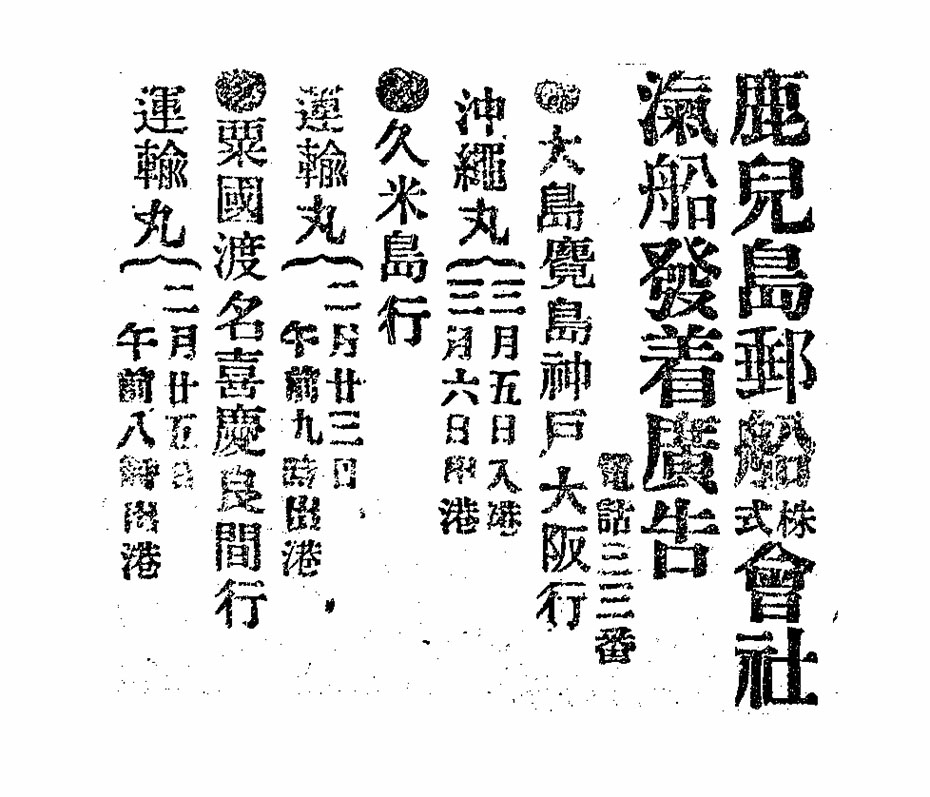 鹿兒島郵船株式會社
滊船發着廣告
電話三三番
◉大島鹿兒島神戸大阪行
沖繩丸
三月五日入港
三月六日出港
◉久米島行
運輸丸
二月廿三日
午前九時出港
◉粟國渡名喜慶良間行
運輸丸
二月廿五日
午前八時出港